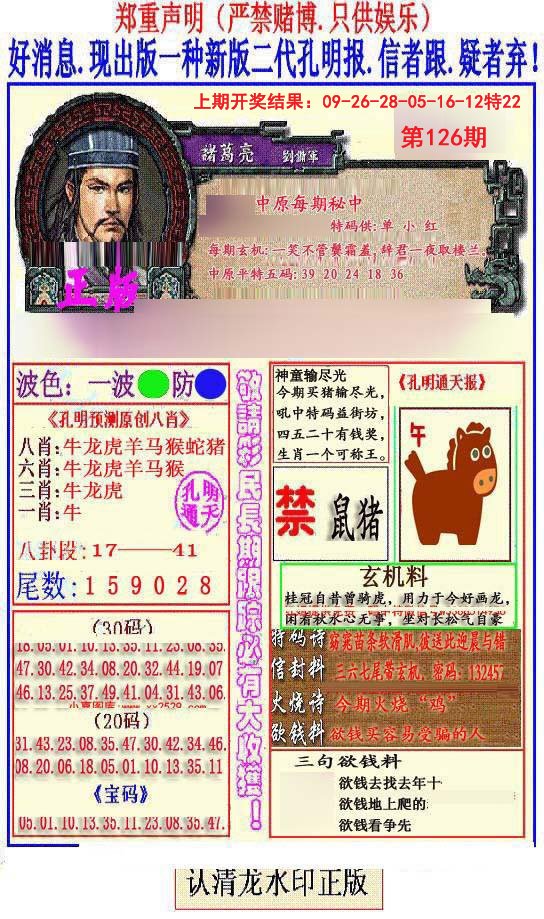 郑重声明（严禁赌博.只供娱乐）
好消息.现出版一种新版二代孔明报.信者跟.疑者弃！
上期开奖结果：09-26-28-05-16-12特22
第126期
諸葛亮
中原每期秘中
特码供:单 小 红
每期玄机:一笑不管鬓霜盖,辞君一夜取楼兰。
中原平特五码: 39 20 24 18 36
正版
波色：一波 防
《孔明预测原创八肖》
八肖:牛龙虎羊马猴蛇猪
六肖:牛龙虎羊马猴
三肖:牛龙虎
一肖:牛
孔明
通天
八卦段:17——41
尾数:159028
(30码)
18.05.01.10.13.35.11.23.08.35.
47.30.42.34.08.20.32.44.19.07
46.13.25.37.49.41.04.31.43.06.
(20码)
31.43.23.08.35.47.30.42.34.46.
08.20.06.18.05.01.10.13.35.11
《宝码》
05.01.10.13.35.11.23.08.35.47.
敬請彩民長期跟踪必有大收獲！
神童输尽光
今期买猪输尽光，
吼中特码益街坊，
四五二十有钱奖，
生肖一个可称王。
《孔明通天报》
午
禁 鼠猪
玄机料
桂冠自昔曾骑虎，用力于今好画龙，
闲着秋水忘无事，坐对长松气自豪
特码诗 窈窕苗条软滑肌,彼送此迎晨与错
信封料 三六七尾带玄机，密码：132457
火烧诗 今期火烧“鸡”
欲钱料 欲钱买容易受骗的人
三句欲钱料
欲钱去找去年十
欲钱地上爬的
欲钱看争先
认清龙水印正版